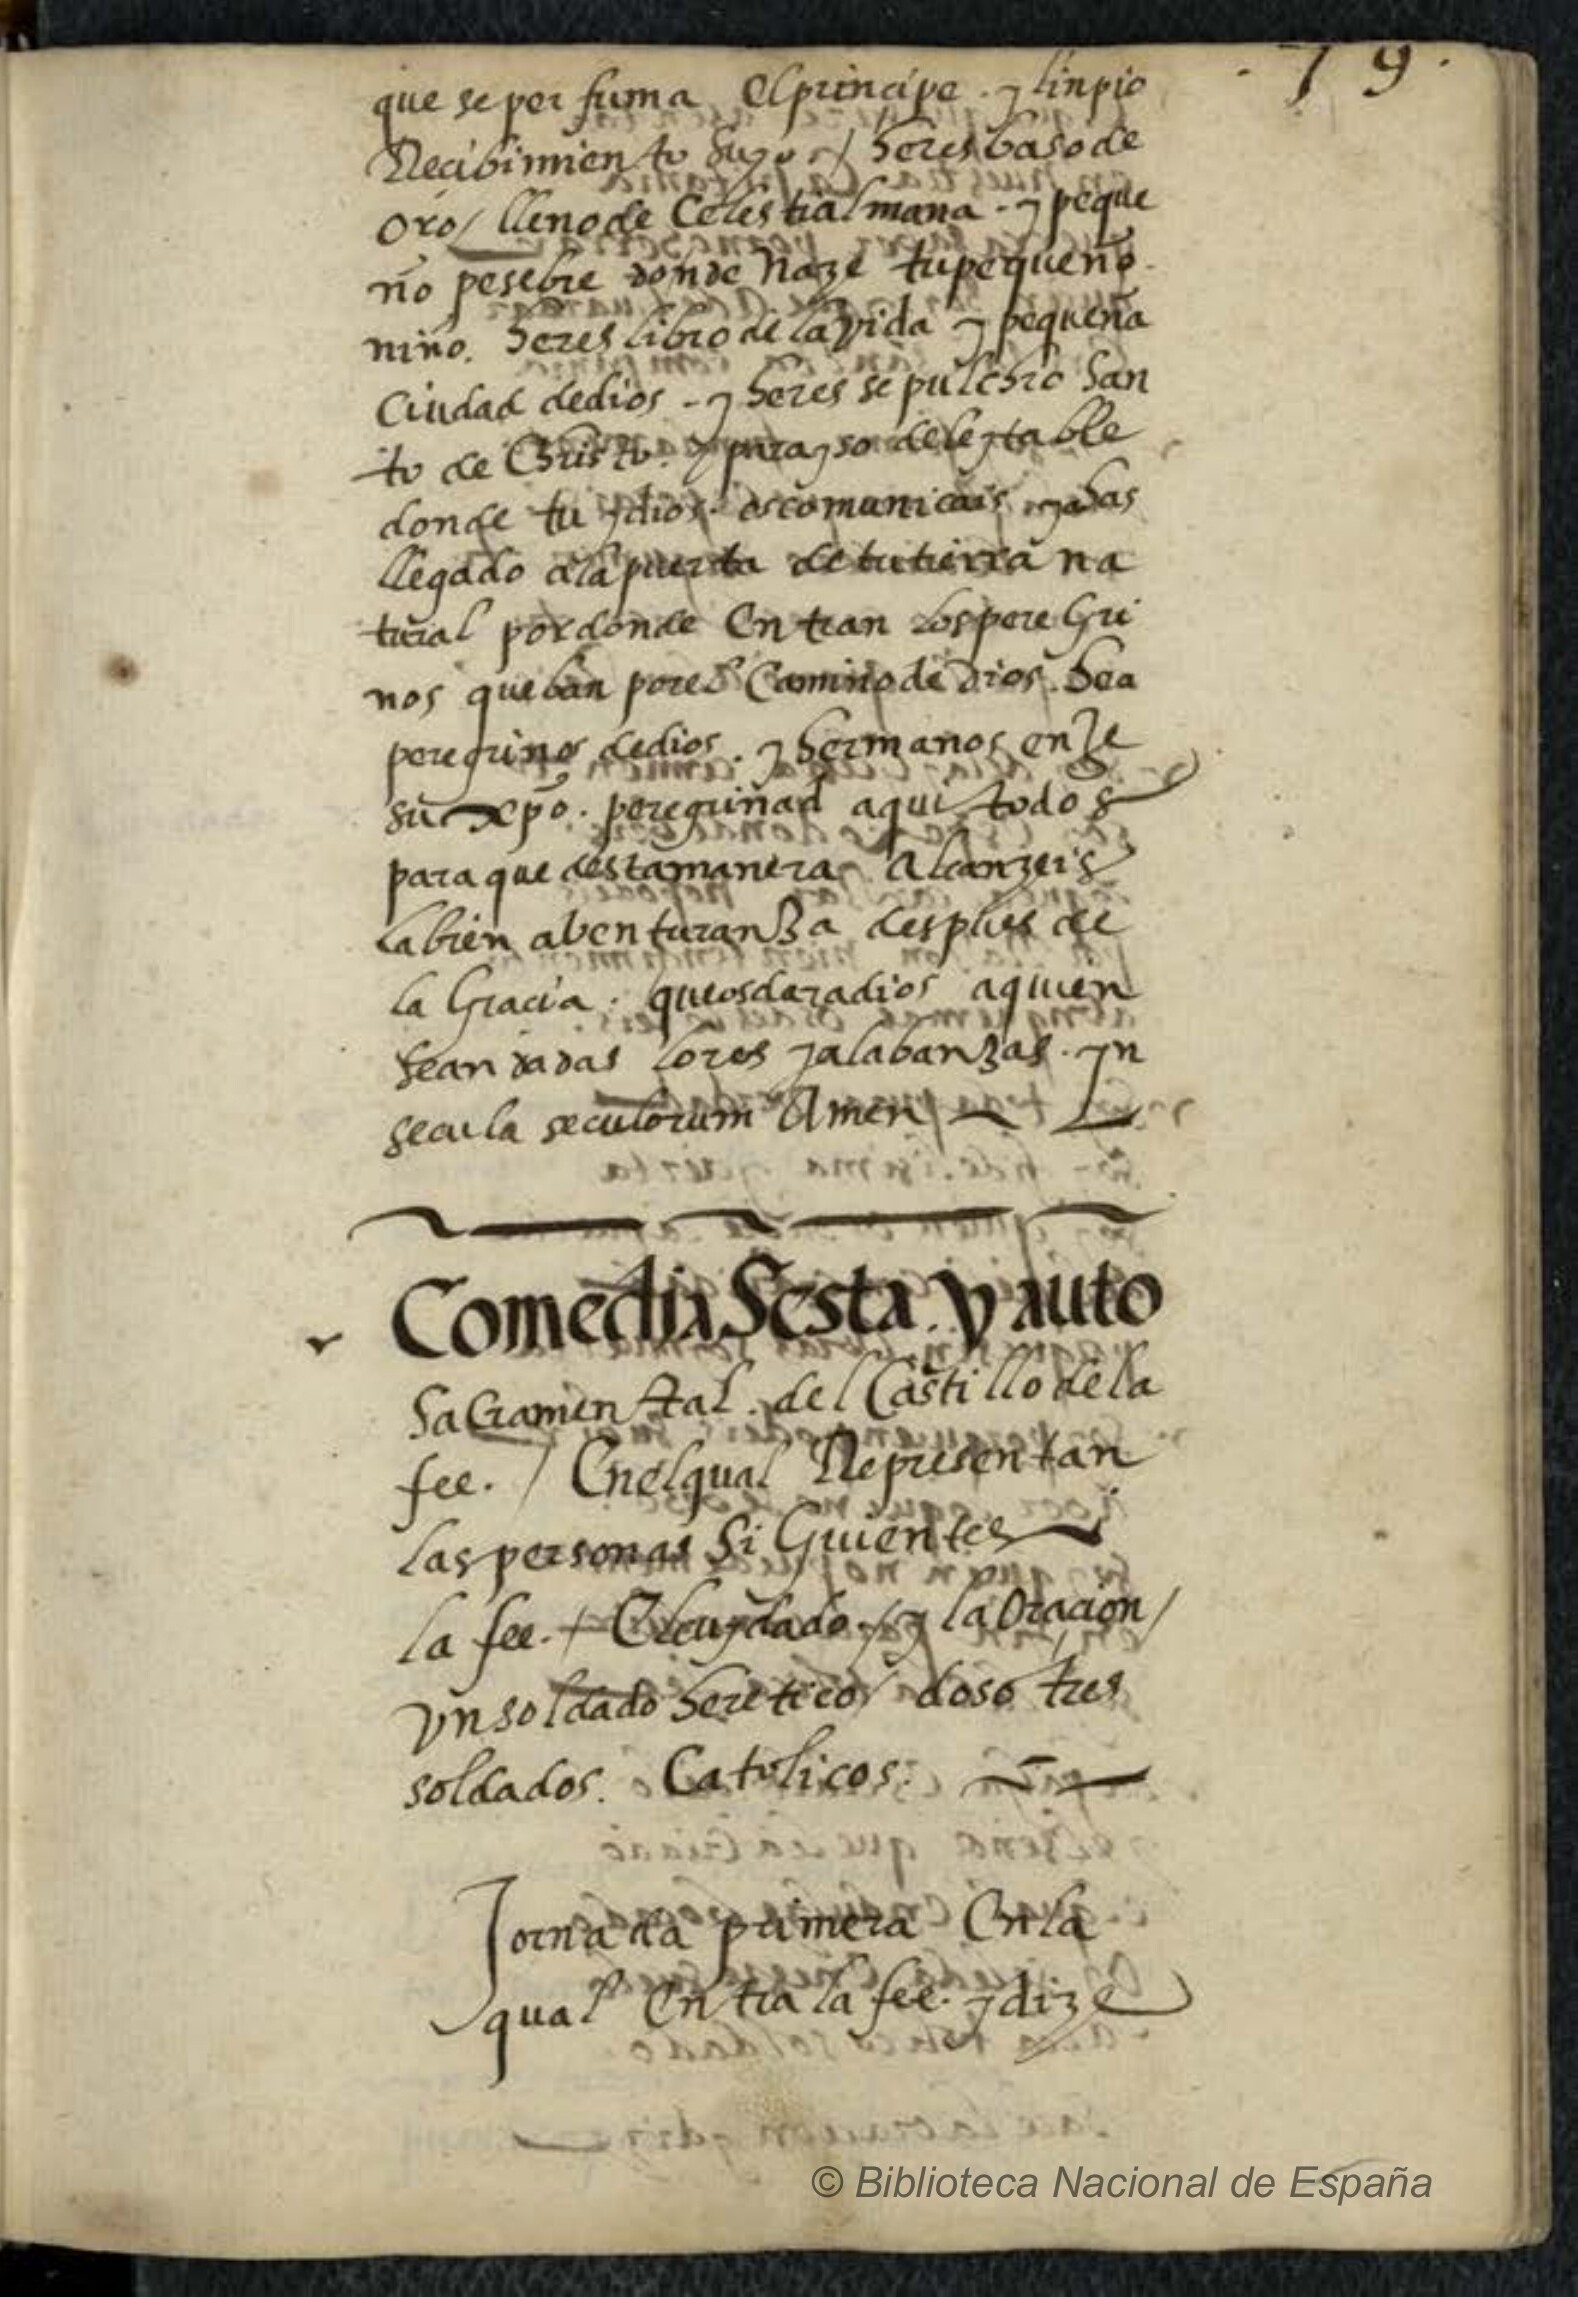 . 79 .
que se perfuma el principe . y linpio
Recibimiento suyo / heres baso de
oro / lleno de celestial mana . y peque
ño pesebre donde naze tu pequeño
niño . heres libro de la vida y pequeña
ciudad de dios . y heres sepulchro san
to de Christo . y parayso deleytable
donde tu y dios . os comunicais . ya has
llegado a la puerta de tu tierra na
tural por donde entran los peregri
nos que ban por el camino de dios . hea
peregrinos de dios . y hermanos en Je
su xpõ . peregrinad aqui todos
para que desta manera alcanzeis
la bien abenturanza despues de
la gracia . que os dara dios a quien
sean dadas lores y alabanzas . yn
secula seculorum Amen
Comedia Sesta . y auto
Sacramental . del Castillo de la
fee . / En el qual Representan
las personas siguientes
la fee . / El cuydado . / y la oracion /
vn soldado heretico / dos o tres
soldados . Catolicos .
Jornada primera En la
qual Entra la fee . y dize
© Biblioteca Nacional de España